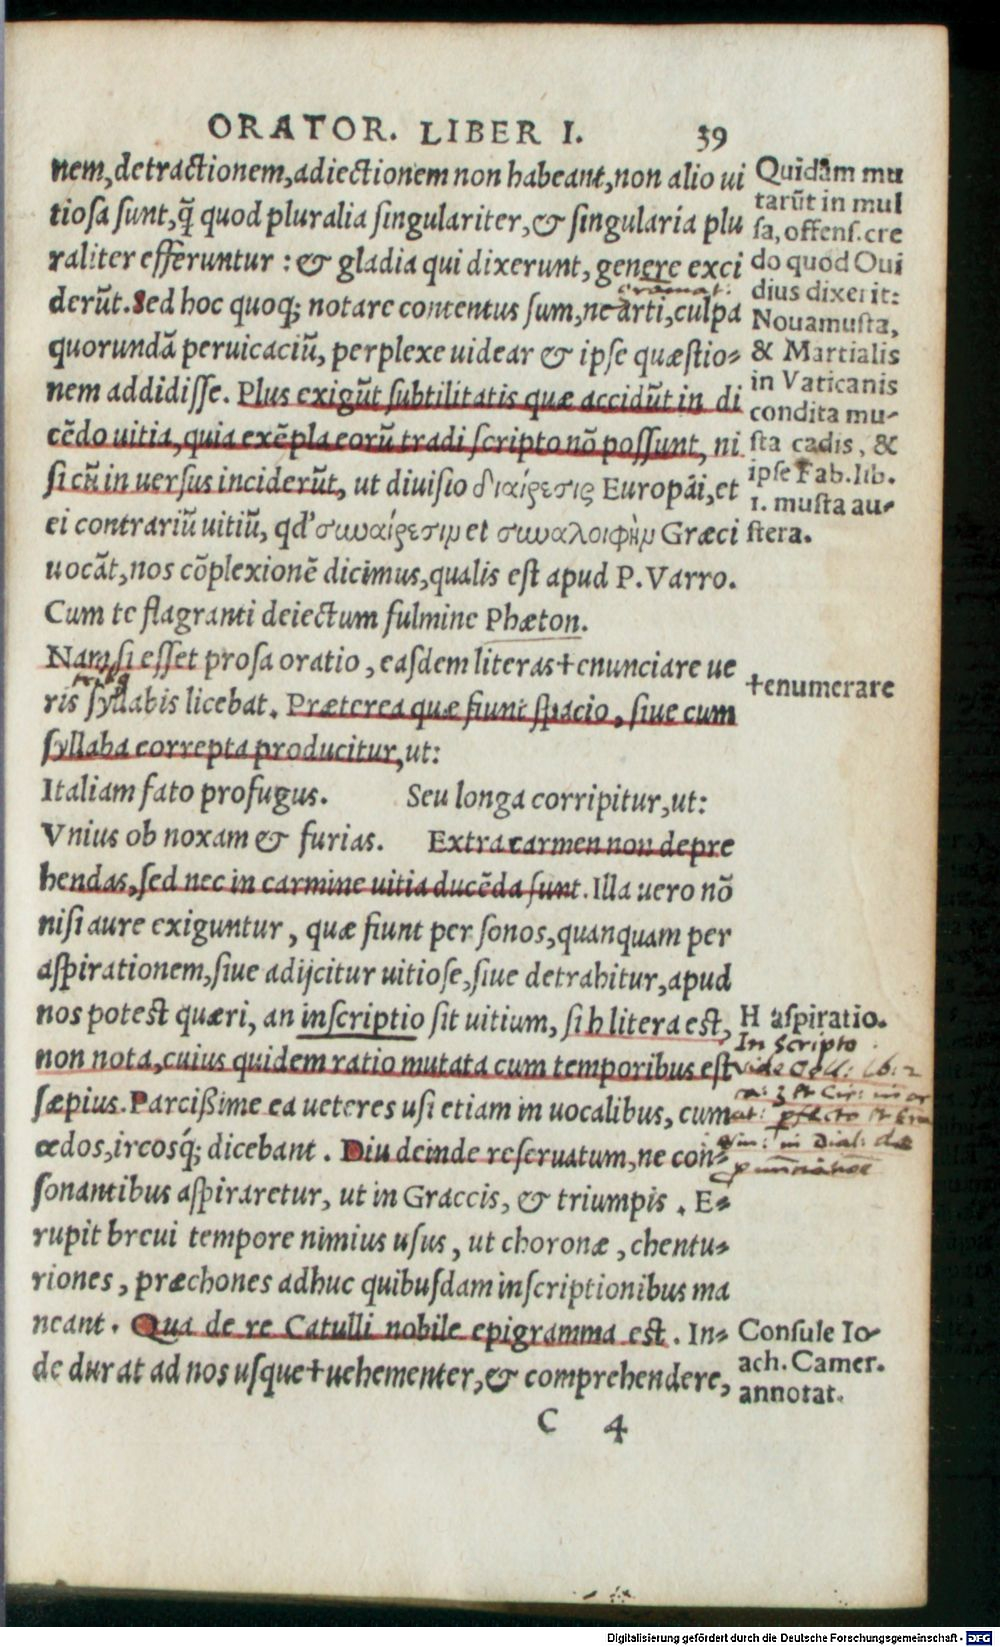 ORATOR. LIBER I. 39
nem,detractionem,adiectionem non habeant,non alio ui
tiosa sunt,q̃ quod pluralia singulariter,& singularia plu
raliter efferuntur : & gladia qui dixerunt, genere exci
derūt.Sed hoc quoq; notare contentus sum,ne arti,culpa
quorundā peruicaciū, perplexe uidear & ipse quæstio-
nem addidisse. Plus exigūt subtilitatis quæ accidūt in di
cēdo uitia,quia exēpla eorū tradi scripto nō possunt, ni
si cū in uersus inciderūt, ut diuisio διαίρεσις Europâi,et
ei contrariū uitiū, qd' συναίρεσιμ et συναλοιφὴμ Græci
uocāt,nos cōplexionē dicimus,qualis est apud P. Varro.
Cum te flagranti deiectum fulmine Phæton.
Nam si esset prosa oratio , easdem literas†enunciare ue
ris syllabis licebat. Præterea quæ fiunt spacio, siue cum
syllaba correpta producitur,ut:
Italiam fato profugus. Seu longa corripitur,ut:
Vnius ob noxam & furias. Extra carmen non depre
hendas,sed nec in carmine uitia ducēda sunt. Illa uero nō
nisi aure exiguntur, quæ fiunt per sonos,quanquam per
aspirationem,siue adijcitur uitiose,siue detrahitur,apud
nos potest quæri, an inscriptio sit uitium, si h litera est,
non nota,cuius quidem ratio mutata cum temporibus est
sæpius.Parcißime ea ueteres usi etiam in uocalibus, cum
œdos,ircosq́; dicebant . Diu deinde reseruatum,ne con-
sonantibus aspiraretur, ut in Graccis, & triumpis . E-
rupit breui tempore nimius usus, ut choronæ, chentu-
riones, præchones adhuc quibusdam inscriptionibus ma
neant. Qua de re Catulli nobile epigramma est . In-
de durat ad nos usque†uehementer,& comprehendere,
C 4
Quidam mu
tarūt in mul
sa, offens. cre
do quod Oui
dius dixerit:
Noua musta,
& Martialis
in Vaticanis
condita mu-
sta cadis, &
ipse Fab. lib.
1. musta au-
stera.
†enumerare
H aspiratio.
In scripto
Consule Io-
ach. Camer.
annotat.
Digitalisierung gefördert durch die Deutsche Forschungsgemeinschaft - DFG